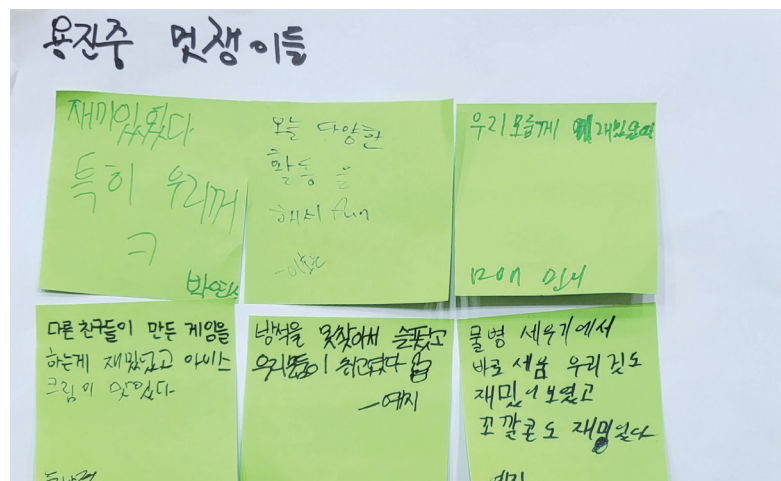 용진중 멋쟁이들
재미있었다
특히 우리꺼
ㅋ
오늘 다양한
활동을
해서 fun
우리모듬께 재밌었
다른 친구들이 만든 게임을
하는게 재밌었고 아이스
크림이 맛있다
방석을 못찾아서 슬펐고
우리들이 최고였다
-예지
물병 세우기에서
바로 세움 우리 것도
재밌어보였고
꼬깔콘도 재밌었다
예지